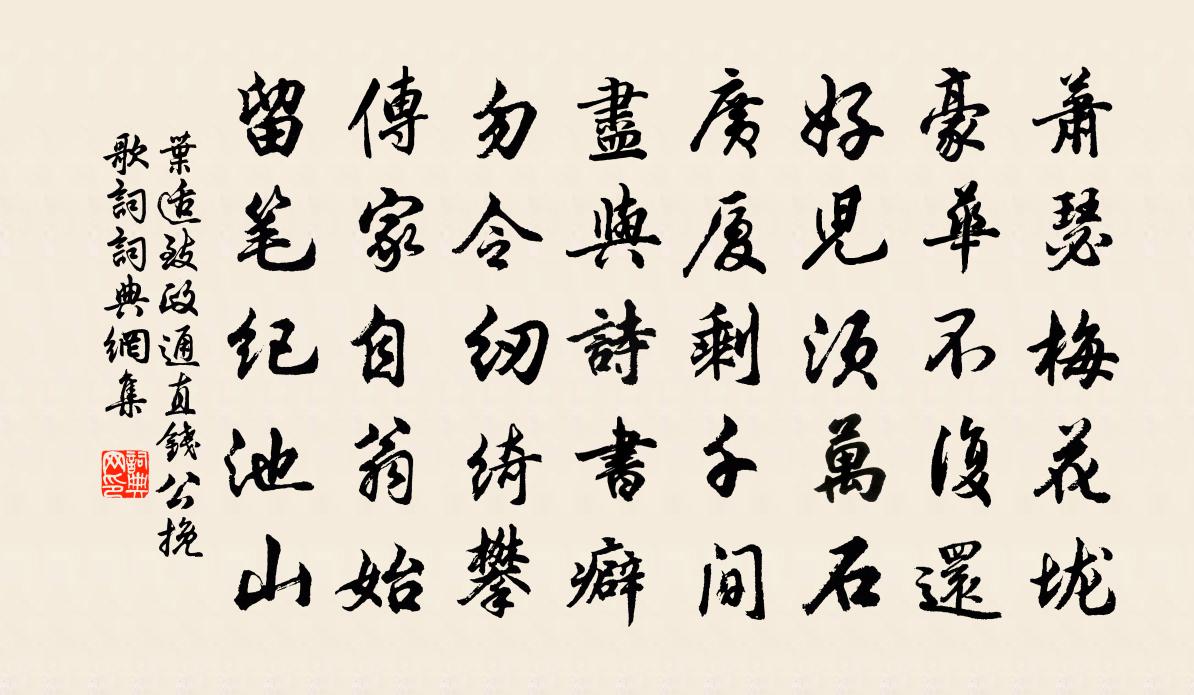 蕭瑟梅花垅
豪華不復還
好児須萬石
廣厦剩千間
盡與詩書癖
勿令纫绮攀
傳家自翁始
留笔纪池山
葉适致政通直錢公挽
歌詞詞典網集
詞典网印